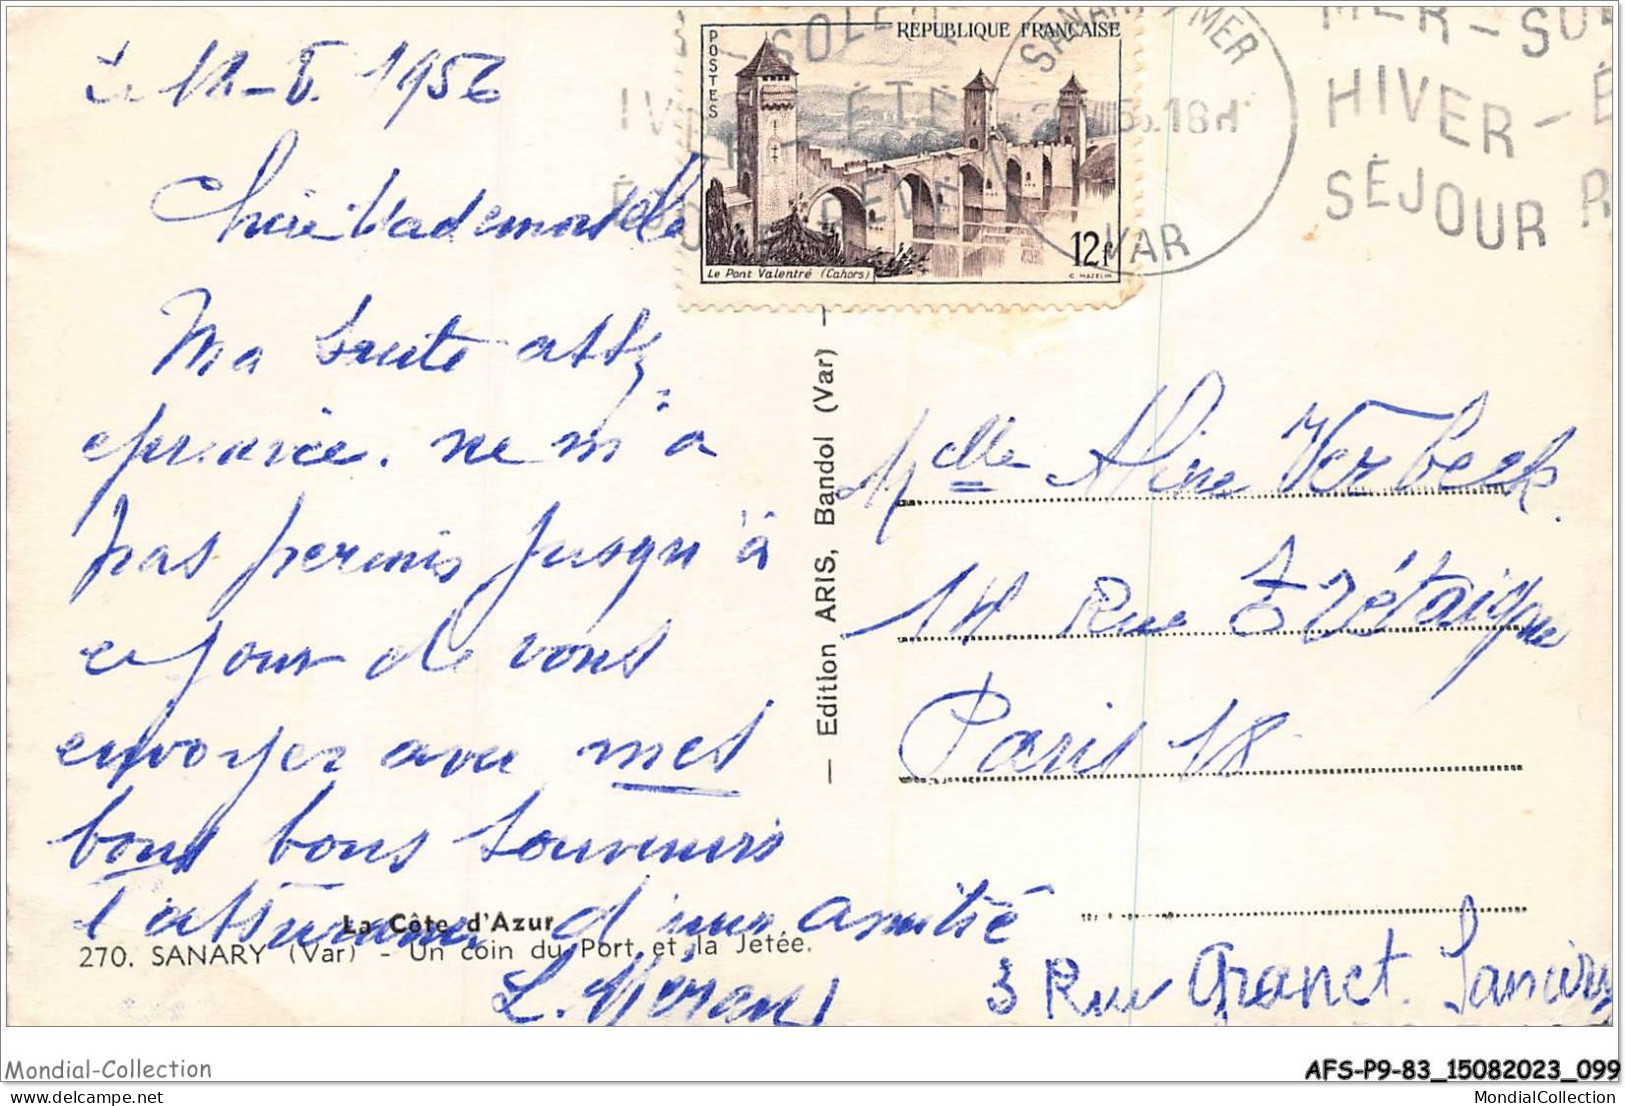 Le 12-8. 1956
Chère Mademoiselle
Ma santé assez
éprouvée. ne m'a
pas permis jusqu'à
ce jour de vous
envoyer avec mes
bons bons souvenirs
l'assurance d'une amitié
L. Morand
3 Rue Granet. Sanary
La Côte d'Azur
270. SANARY (Var) - Un coin du Port et la Jetée.
— Edition ARIS, Bandol (Var) —
POSTES
REPUBLIQUE FRANÇAISE
Le Pont Valentré (Cahors)
12F
C. HAZELIN
SANARY / MER
18H
VAR
SOLEIL
ÉTÉ
MER - SO
HIVER - É
SÉJOUR R
Melle Aline Verbeek
14 Rue Trétaigne
Paris 18
Mondial-Collection
AFS-P9-83_15082023_099
MondialCollection